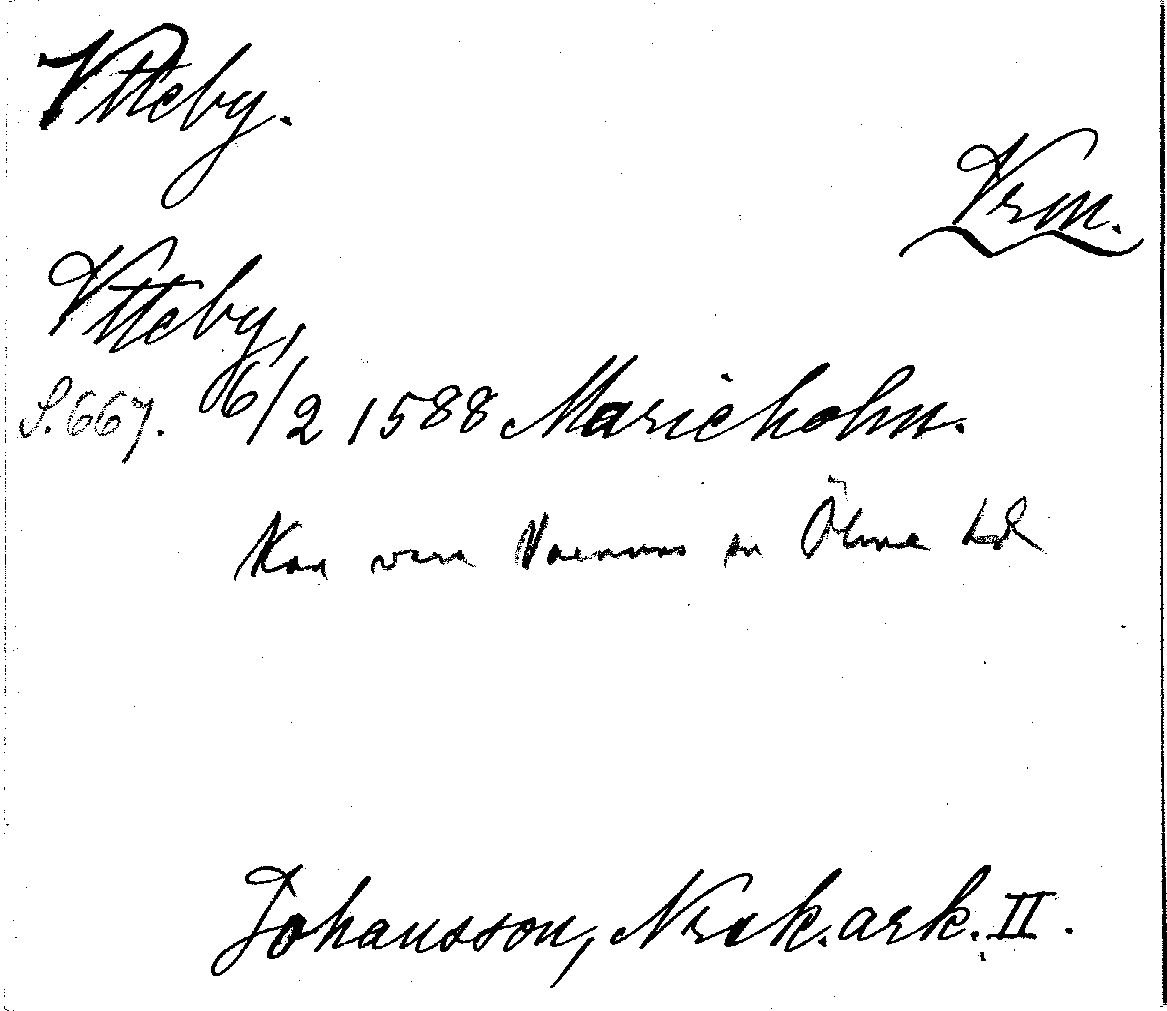 Vtteby.
Vrm.
Vtteby,
S. 667. 6/2 1588 Marieholm.
Kan vara Varnums en Ölme hd
Johansson, Norsk. ark. II.